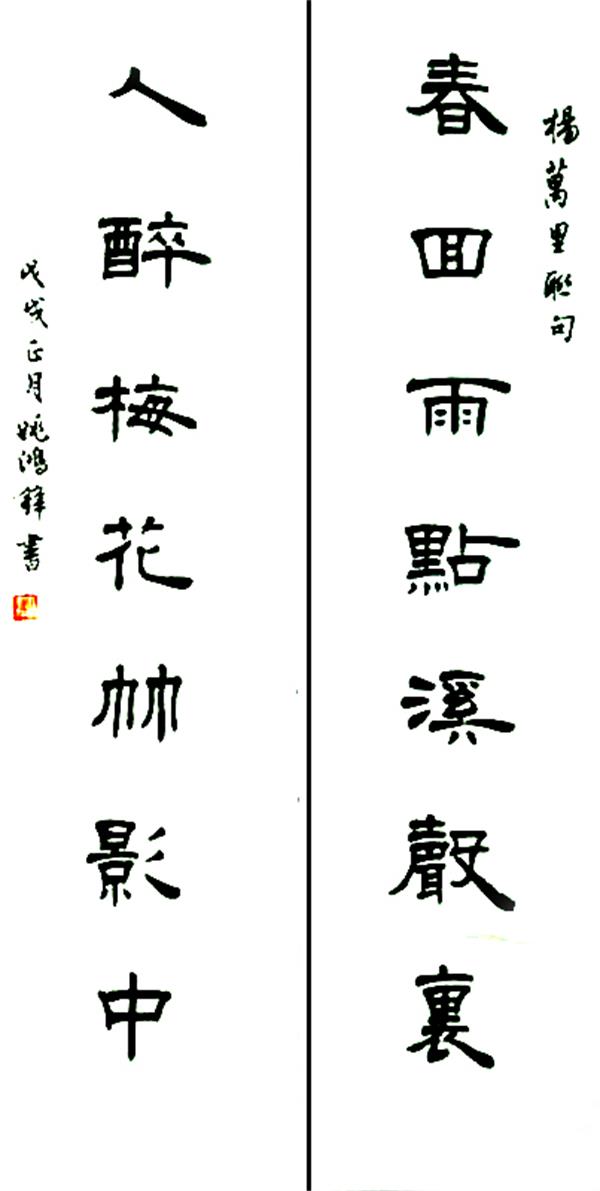 楊萬里聯句
春回雨點溪聲裏
人醉梅花竹影中
戊戌正月姚鴻鋒書